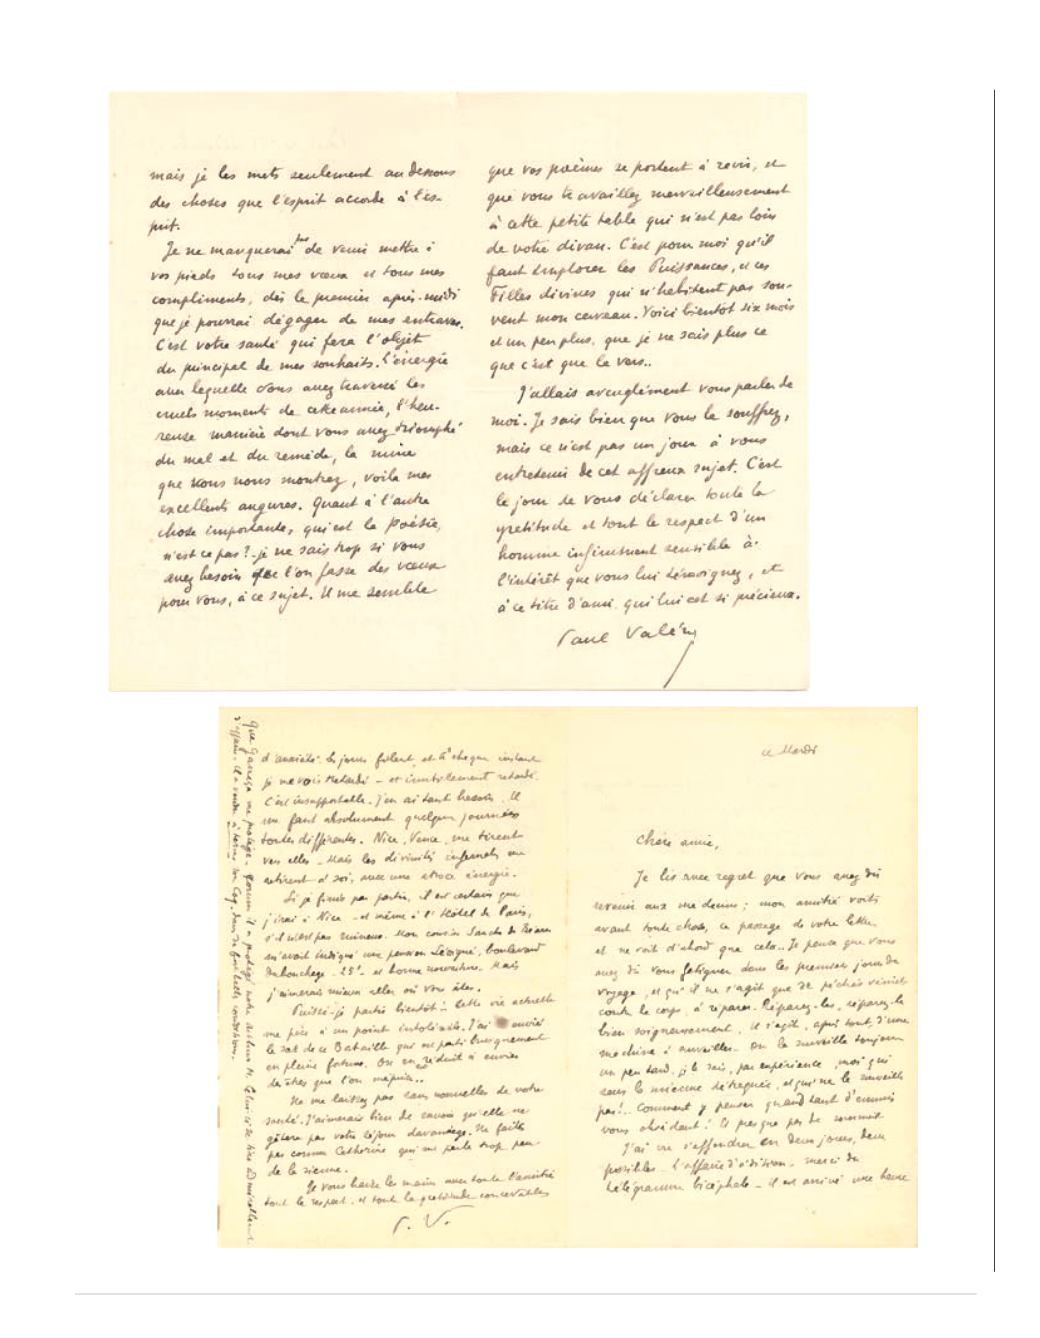 mais je les mets seulement au dessous
des choses que l'esprit accorde à l'es-
prit.
Je ne manquerai pas de venir mettre à
vos pieds tous mes vœux et tous mes
compliments, dès le premier après-midi
que je pourrai dégager de mes entraves.
C'est votre santé qui fera l'objet
du principal de mes souhaits. L'énergie
avec laquelle vous avez traversé les
cruels moments de cette année, l'heu-
reuse manière dont vous avez triomphé
du mal et du remède, la mine
que vous nous montrez, voilà mes
excellents augures. Quant à l'autre
chose importante, qui est la Poésie,
n'est ce pas? - je ne sais trop si vous
avez besoin que l'on fasse des vœux
pour vous, à ce sujet. Il me semble
que vos poèmes se portent à ravir, et
que vous travaillez merveilleusement
à cette petite table qui n'est pas loin
de votre divan. C'est pour moi qu'il
faut implorer les Puissances, et ces
Filles divines qui n'habitent pas sou-
vent mon cerveau. Voici bientôt six mois
et un peu plus, que je ne sais plus ce
que c'est que le vers..
J'allais aveuglément vous parler de
moi. Je sais bien que vous le souffrez,
mais ce n'est pas un jour à vous
entretenir de cet affreux sujet. C'est
le jour de vous déclarer toute la
gratitude et tout le respect d'un
homme infiniment sensible à
l'intérêt que vous lui témoignez, et
à ce titre d'ami, qui lui est si précieux.
Paul Valéry
ce Mardi
Chère amie,
Je lis avec regret que vous avez dû
revenir aux ; mon amitié voit
avant toute chose, ce passage de votre lettre
et ne voit d'abord que cela.. Je pense que vous
avez dû vous fatiguer dans les premiers jours du
voyage, et qu'il ne s'agit que de péchés véniels
contre le corps, à réparer. Réparez-les, réparez-le
bien soigneusement, il s'agit, après tout, d'une
machine à surveiller. On la surveille toujours
un peu tard, je le sais, par expérience, moi qui
sens la mienne détraquée, et qui ne la surveille
pas!.. Comment y penser quand tant d'ennuis
vous obsèdent! Et presque pas de sommeil
J'ai vu s'effondrer en deux jours, deux
possibles - L'affaire d'édition - merci du
télégramme bicéphale - il est arrivé une heure
d'anxiété. Les jours filent, et à chaque instant
je me vois retardé - et inutilement retardé.
C'est insupportable. J'en ai tant besoin. Il
me faut absolument quelques journées
toutes différentes. Nice, Vence, me tirent
vers elles - Mais les divinités infernales me
retirent à soi, avec une atroce énergie.
Si je finis par partir, il est certain que
j'irai à Nice - et même à l'Hôtel de Paris,
s'il n'est pas ruineux. Mon cousin
m'avait indiqué une pension Sévigné, boulevard
Dubouchage - 25f. et bonne nourriture. Mais
j'aimerais mieux aller où vous êtes.
Puissé-je partir bientôt! Cette vie actuelle
me pèse à un point intolérable. J'ai envié
le sort de ce Bataille qui est parti brusquement
en pleine fortune. On en est réduit à envier
des êtres que l'on méprise..
Ne me laissez pas sans nouvelles de votre
santé. J'aimerais bien de savoir qu'elle ne
gâtera pas votre séjour davantage. Ne faites
pas comme Catherine qui me parle trop peu
de la sienne.
Je vous baise les mains avec toute l'amitié
tout le respect, et toute la gratitude concevables
P. V.
que me protège - comme il a protégé notre
d'affaire. Il a vendu à son Coq, dans de fort belles conditions.